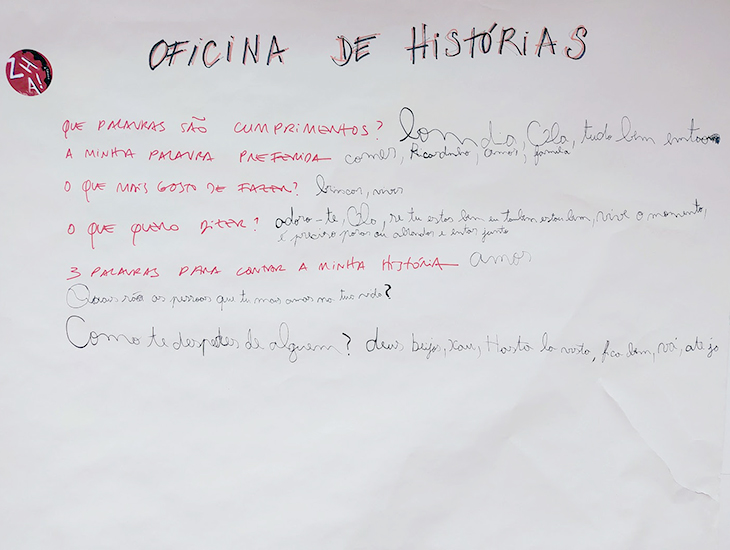 OFICINA DE HISTÓRIAS
ZH
A!
QUE PALAVRAS SÃO CUMPRIMENTOS? bom dia, Ola, tudo bem entao
A MINHA PALAVRA PREFERIDA comer, Ricardinho, amor, família
O QUE MAIS GOSTO DE FAZER? brincar, viver
O QUE QUERO DIZER? adoro-te, Ola, se tu estas bem eu tanbem estou bem, vive o momento,
é preciso parar ou abrandar e estar junto
3 PALAVRAS PARA CONTAR A MINHA HISTÓRIA amor
Quais são as pessoas que tu mas amas na tua vida?
Como te despedes de alguem? deus beijos, xau, Hasta la vista, fica bem, vá, ate já